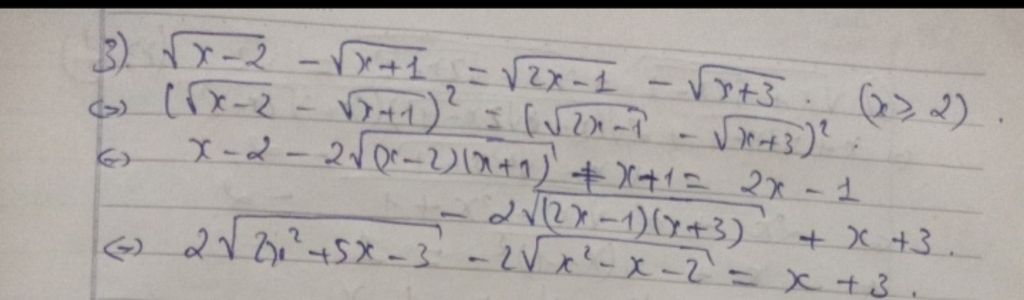 3). √(x-2) - √(x+1) = √(2x-1) - √(x+3) . (x ≥ 2) .
<=> (√(x-2) - √(x+1))² = (√(2x-1) - √(x+3))² .
<=> x - 2 - 2√((x-2)(x+1)) + x+1 = 2x - 1
- 2√((2x-1)(x+3)) + x + 3 .
<=> 2√(2x²+5x-3) - 2√(x²-x-2) = x + 3 .